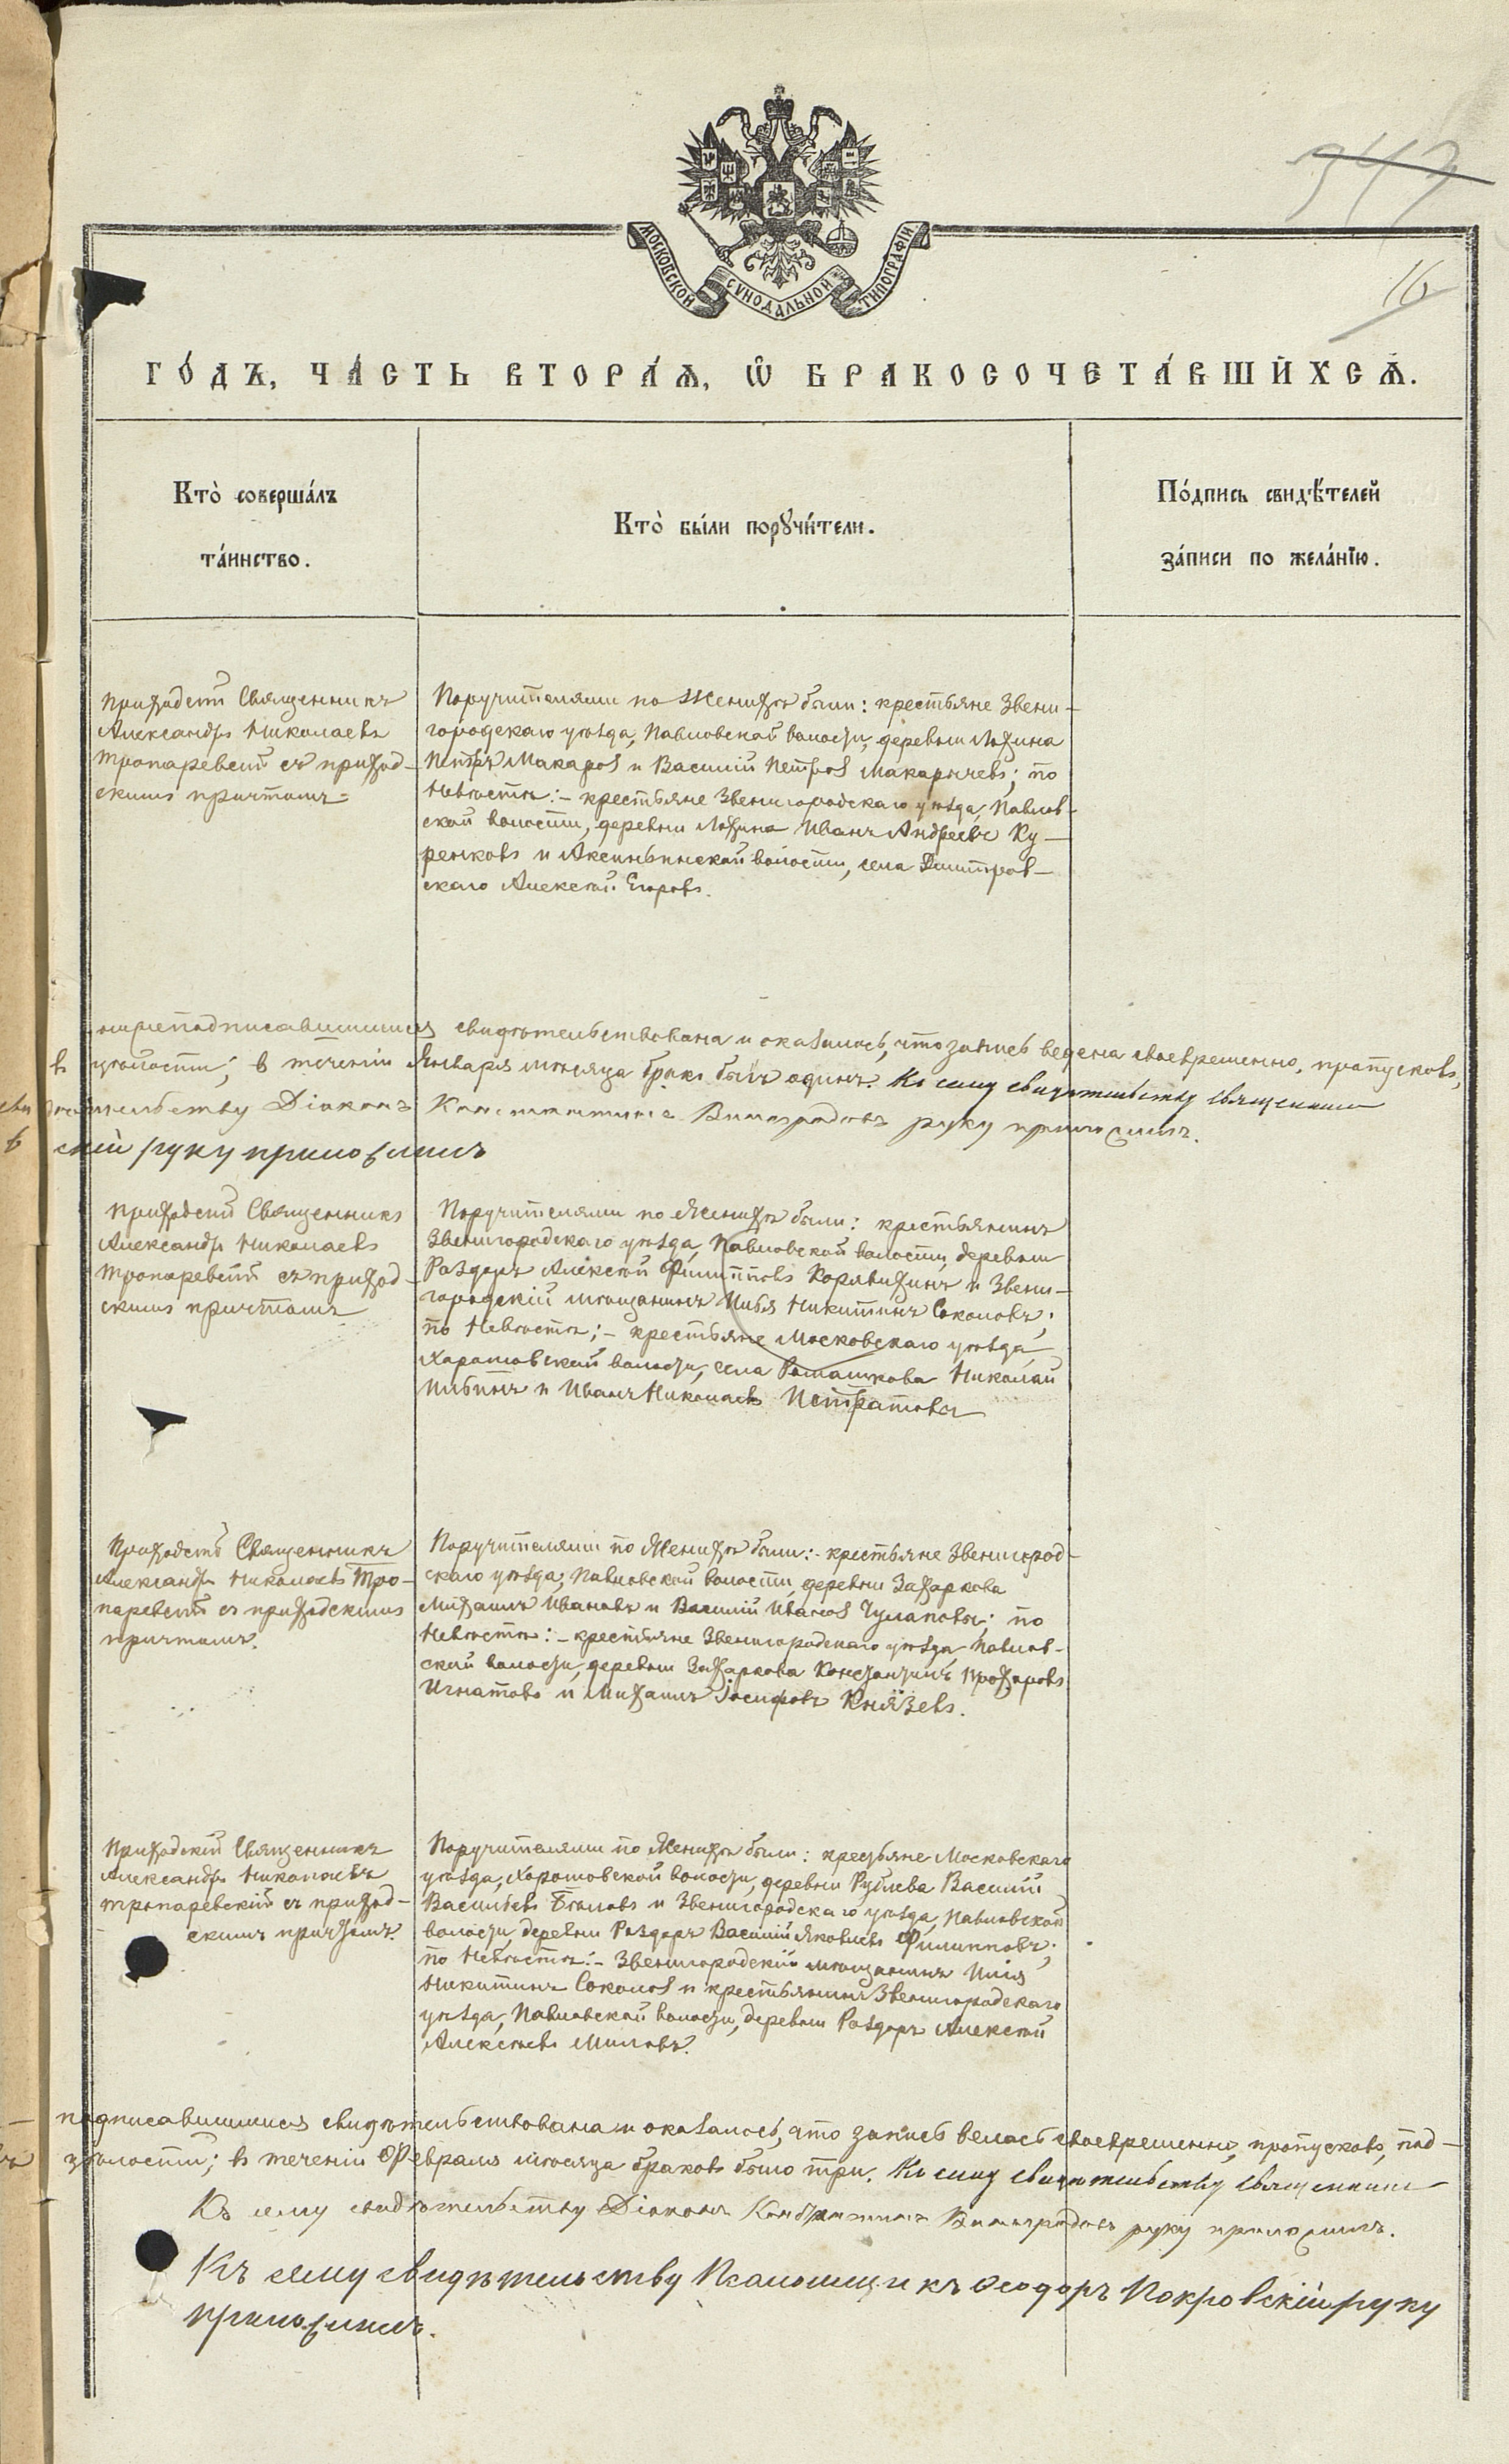 347
16
МОСКОВСКОЙ СѴНОДАЛЬНОЙ ТИПОГРАФІИ
ГО́ДЪ, ЧА́СТЬ ВТОРА́Ѧ, Ѽ БРАКОСОЧЕТА́ВШИ́ХСѦ.
Кто̀ соверша́лъ
та́инство.
Кто̀ бы́ли порꙋчи́тели.
По́дпись свидѣ́телей
за́писи по жела́нїю.
Приходскій Священникъ
Александръ Николаевъ
Тропаревскій съ приход-
скимъ причтомъ
Поручителями по Женихѣ были: крестьяне Звени-
городскаго уѣзда, Павловской волости, деревни Лохина
Петръ Макаровъ и Василій Петровъ Макарычевъ; по
Невѣстѣ:- крестьяне Звенигородскаго уѣзда, Павлов-
ской волости, деревни Лохина Иванъ Андреевъ Ку-
ренковъ и Аксиньинской волости, села Дмитров-
скаго Алексѣй Егоровъ.
нижеподписавшимися свидѣтельствована и оказалось, что запись ведена своевременно, пропусковъ,
въ цѣлости; въ теченіи Января мѣсяца бракъ былъ одинъ. Къ сему свидѣтельству священник
свидѣтельству Діаконъ Константинъ Виноградовъ руку приложилъ.
скій руку приложилъ
Приходскій Священникъ
Александръ Николаевъ
Тропаревскій съ приход-
скимъ причтомъ
Поручителями по Женихѣ были: крестьянинъ
Звенигородскаго уѣзда, Павловской волости, деревни
Раздоръ Алексѣй Филипповъ Карявихинъ и Звени-
городскій мѣщанинъ Илья Никитинъ Соколовъ;
по Невѣстѣ;- крестьяне Московскаго уѣзда,
Хорошовской волости, села Ромашкова Николай
Ильинъ и Иванъ Николаевъ
Приходскій Священникъ
Александръ Николаевъ Тро-
паревскій съ приходскимъ
причтомъ.
Поручителями по Женихѣ были:- крестьяне Звенигород-
скаго уѣзда, Павловской волости, деревни Захаркова
Михаилъ Ивановъ и Василій Ивановъ Чумаковы; по
Невѣстѣ:- крестьяне Звенигородскаго уѣзда, Павлов-
ской волости, деревни Захаркова Константинъ Прохоровъ
Игнатовъ и Михаилъ Іосифовъ Князевъ.
Приходскій Священникъ
Александръ Николаевъ
Тропаревскій съ приход-
скимъ причтомъ.
Поручителями по Женихѣ были: крестьяне Московскаго
уѣзда, Хорошовской волости, деревни Рублева Василій
Васильевъ Бѣловъ и Звенигородскаго уѣзда, Павловской
волости, деревни Раздоръ Василій Яковлевъ Филипповъ;
по Невѣстѣ:- Звенигородскій мѣщанинъ Илія
Никитинъ Соколовъ и крестьянинъ Звенигородскаго
уѣзда, Павловской волости, деревни Раздоръ Алексѣй
Алексѣевъ Миловъ.
подписавшимися свидѣтельствована и оказалось, что запись велась своевременно, пропусковъ, под-
цѣлости; въ теченіи Февраля мѣсяца браковъ было три. Къ сему свидѣтельству священник
Къ сему свидѣтельству Діаконъ Константинъ Виноградовъ руку приложилъ.
Къ сему свидѣтельству Псаломщикъ Ѳеодоръ Покровскій руку
приложилъ.